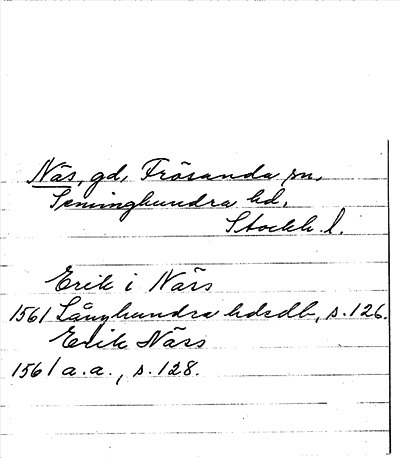 Näs, gd, Frösunda sn,
Seminghundra hd.
Stockh. l.
Erik i Närs
1561 Långhundra hdrdb, s. 126.
Erik Närs
1561 a.a., s. 128.